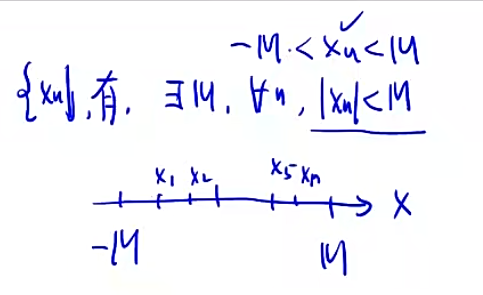 -M < xn < M
{xn}, 有. ∃M, ∀n, |xn|<M
x1 x2 x5 xn
x
-M M